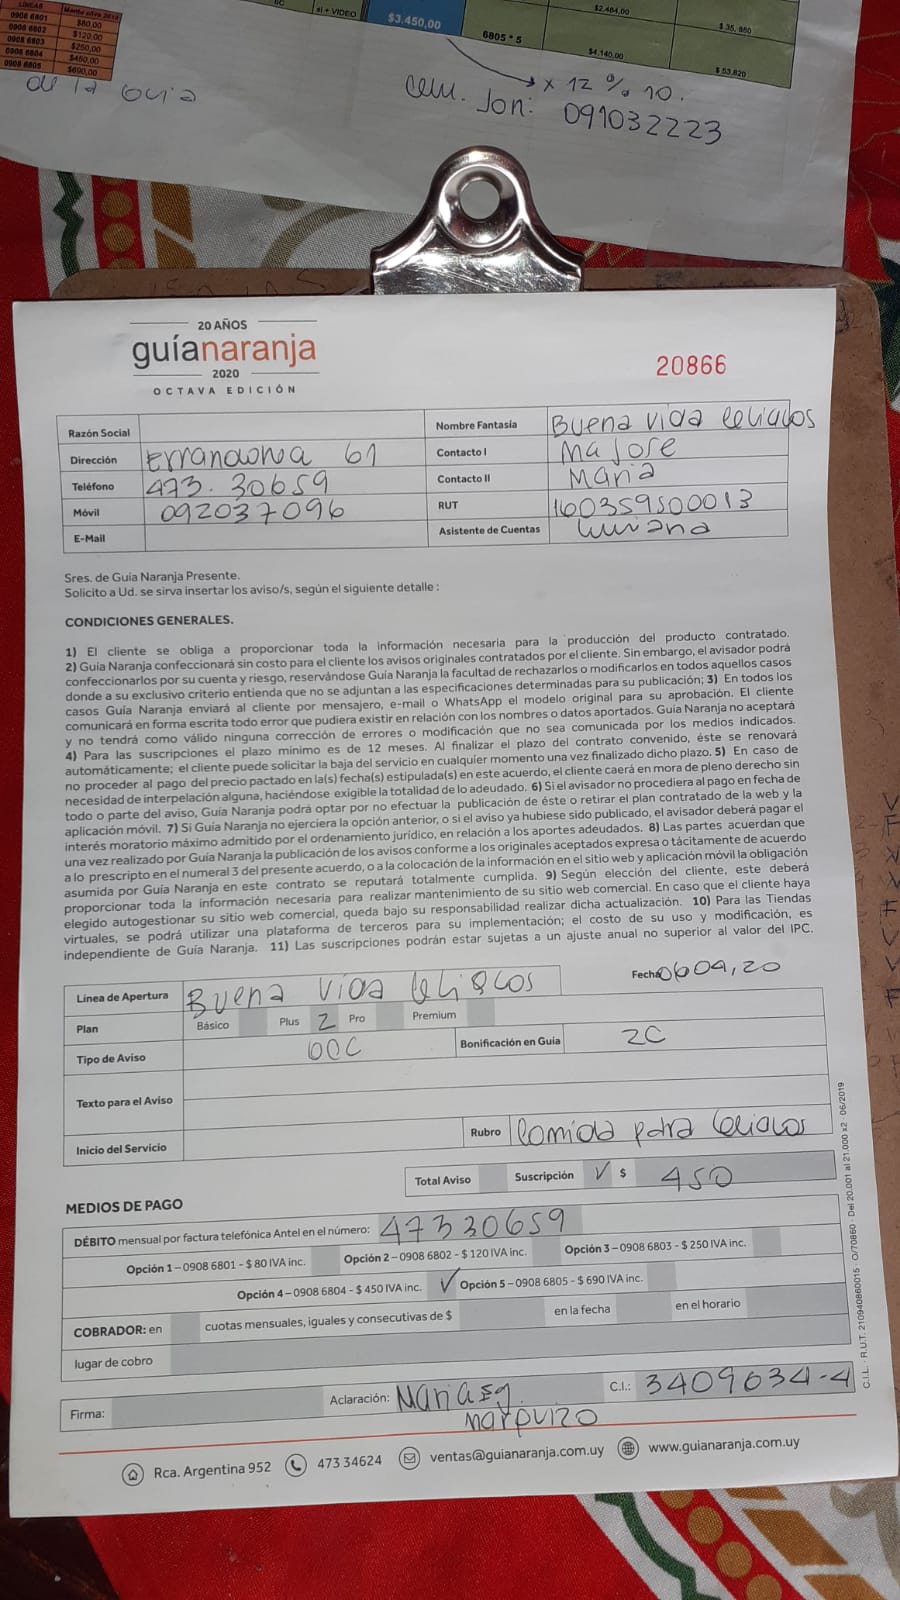 LÍNEAS
0908 6801 $80,00
0908 6802 $120,00
0908 6803 $250,00
0908 6804 $450,00
0908 6805 $690,00
si + VIDEO
$3.450,00
6805 * 5
$2.484,00
$4.140,00
$ 53,820
de la Guia
x 12 % 10.
Jon: 091032223
20 AÑOS
guíanaranja
2020
OCTAVA EDICIÓN
20866
Razón Social
Nombre Fantasía Buena vida Celiacos
Dirección Errandonea 61
Contacto I Ma Jose
Teléfono 473.30659
Contacto II Maria
Móvil 092037096
RUT 160359500013
E-Mail
Asistente de Cuentas Luviana
Sres. de Guía Naranja Presente.
Solicito a Ud. se sirva insertar los aviso/s, según el siguiente detalle :
CONDICIONES GENERALES.
1) El cliente se obliga a proporcionar toda la información necesaria para la producción del producto contratado.
2) Guía Naranja confeccionará sin costo para el cliente los avisos originales contratados por el cliente. Sin embargo, el avisador podrá
confeccionarlos por su cuenta y riesgo, reservándose Guía Naranja la facultad de rechazarlos o modificarlos en todos aquellos casos
donde a su exclusivo criterio entienda que no se adjuntan a las especificaciones determinadas para su publicación; 3) En todos los
casos Guía Naranja enviará al cliente por mensajero, e-mail o WhatsApp el modelo original para su aprobación. El cliente
comunicará en forma escrita todo error que pudiera existir en relación con los nombres o datos aportados. Guía Naranja no aceptará
y no tendrá como válido ninguna corrección de errores o modificación que no sea comunicada por los medios indicados.
4) Para las suscripciones el plazo mínimo es de 12 meses. Al finalizar el plazo del contrato convenido, éste se renovará
automáticamente; el cliente puede solicitar la baja del servicio en cualquier momento una vez finalizado dicho plazo. 5) En caso de
no proceder al pago del precio pactado en la(s) fecha(s) estipulada(s) en este acuerdo, el cliente caerá en mora de pleno derecho sin
necesidad de interpelación alguna, haciéndose exigible la totalidad de lo adeudado. 6) Si el avisador no procediera al pago en fecha de
todo o parte del aviso, Guía Naranja podrá optar por no efectuar la publicación de éste o retirar el plan contratado de la web y la
aplicación móvil. 7) Si Guía Naranja no ejerciera la opción anterior, o si el aviso ya hubiese sido publicado, el avisador deberá pagar el
interés moratorio máximo admitido por el ordenamiento jurídico, en relación a los aportes adeudados. 8) Las partes acuerdan que
una vez realizado por Guía Naranja la publicación de los avisos conforme a los originales aceptados expresa o tácitamente de acuerdo
a lo prescripto en el numeral 3 del presente acuerdo, o a la colocación de la información en el sitio web y aplicación móvil la obligación
asumida por Guía Naranja en este contrato se reputará totalmente cumplida. 9) Según elección del cliente, este deberá
proporcionar toda la información necesaria para realizar mantenimiento de su sitio web comercial. En caso que el cliente haya
elegido autogestionar su sitio web comercial, queda bajo su responsabilidad realizar dicha actualización. 10) Para las Tiendas
virtuales, se podrá utilizar una plataforma de terceros para su implementación; el costo de su uso y modificación, es
independiente de Guía Naranja. 11) Las suscripciones podrán estar sujetas a un ajuste anual no superior al valor del IPC.
Fecha 0604,20
Línea de Apertura Buena vida Celiacos
Plan Básico Plus 2 Pro Premium
Tipo de Aviso OCC Bonificación en Guía 2C
Texto para el Aviso
Inicio del Servicio Rubro Comida para Celiacos
Total Aviso Suscripción √ $ 450
MEDIOS DE PAGO
DÉBITO mensual por factura telefónica Antel en el número: 47330659
Opción 1 – 0908 6801 - $ 80 IVA inc. Opción 2 – 0908 6802 - $ 120 IVA inc. Opción 3 – 0908 6803 - $ 250 IVA inc.
Opción 4 – 0908 6804 - $ 450 IVA inc. √ Opción 5 – 0908 6805 - $ 690 IVA inc.
COBRADOR: en cuotas mensuales, iguales y consecutivas de $ en la fecha en el horario
lugar de cobro
Firma: Aclaración: Maria C.I.: 3409634-4
marquizo
Rca. Argentina 952 473 34624 ventas@guianaranja.com.uy www.guianaranja.com.uy
C.I.L. · R.U.T. 210940860015 · O/70860 · Del 20.001 al 21.000 x2 · 06/2019